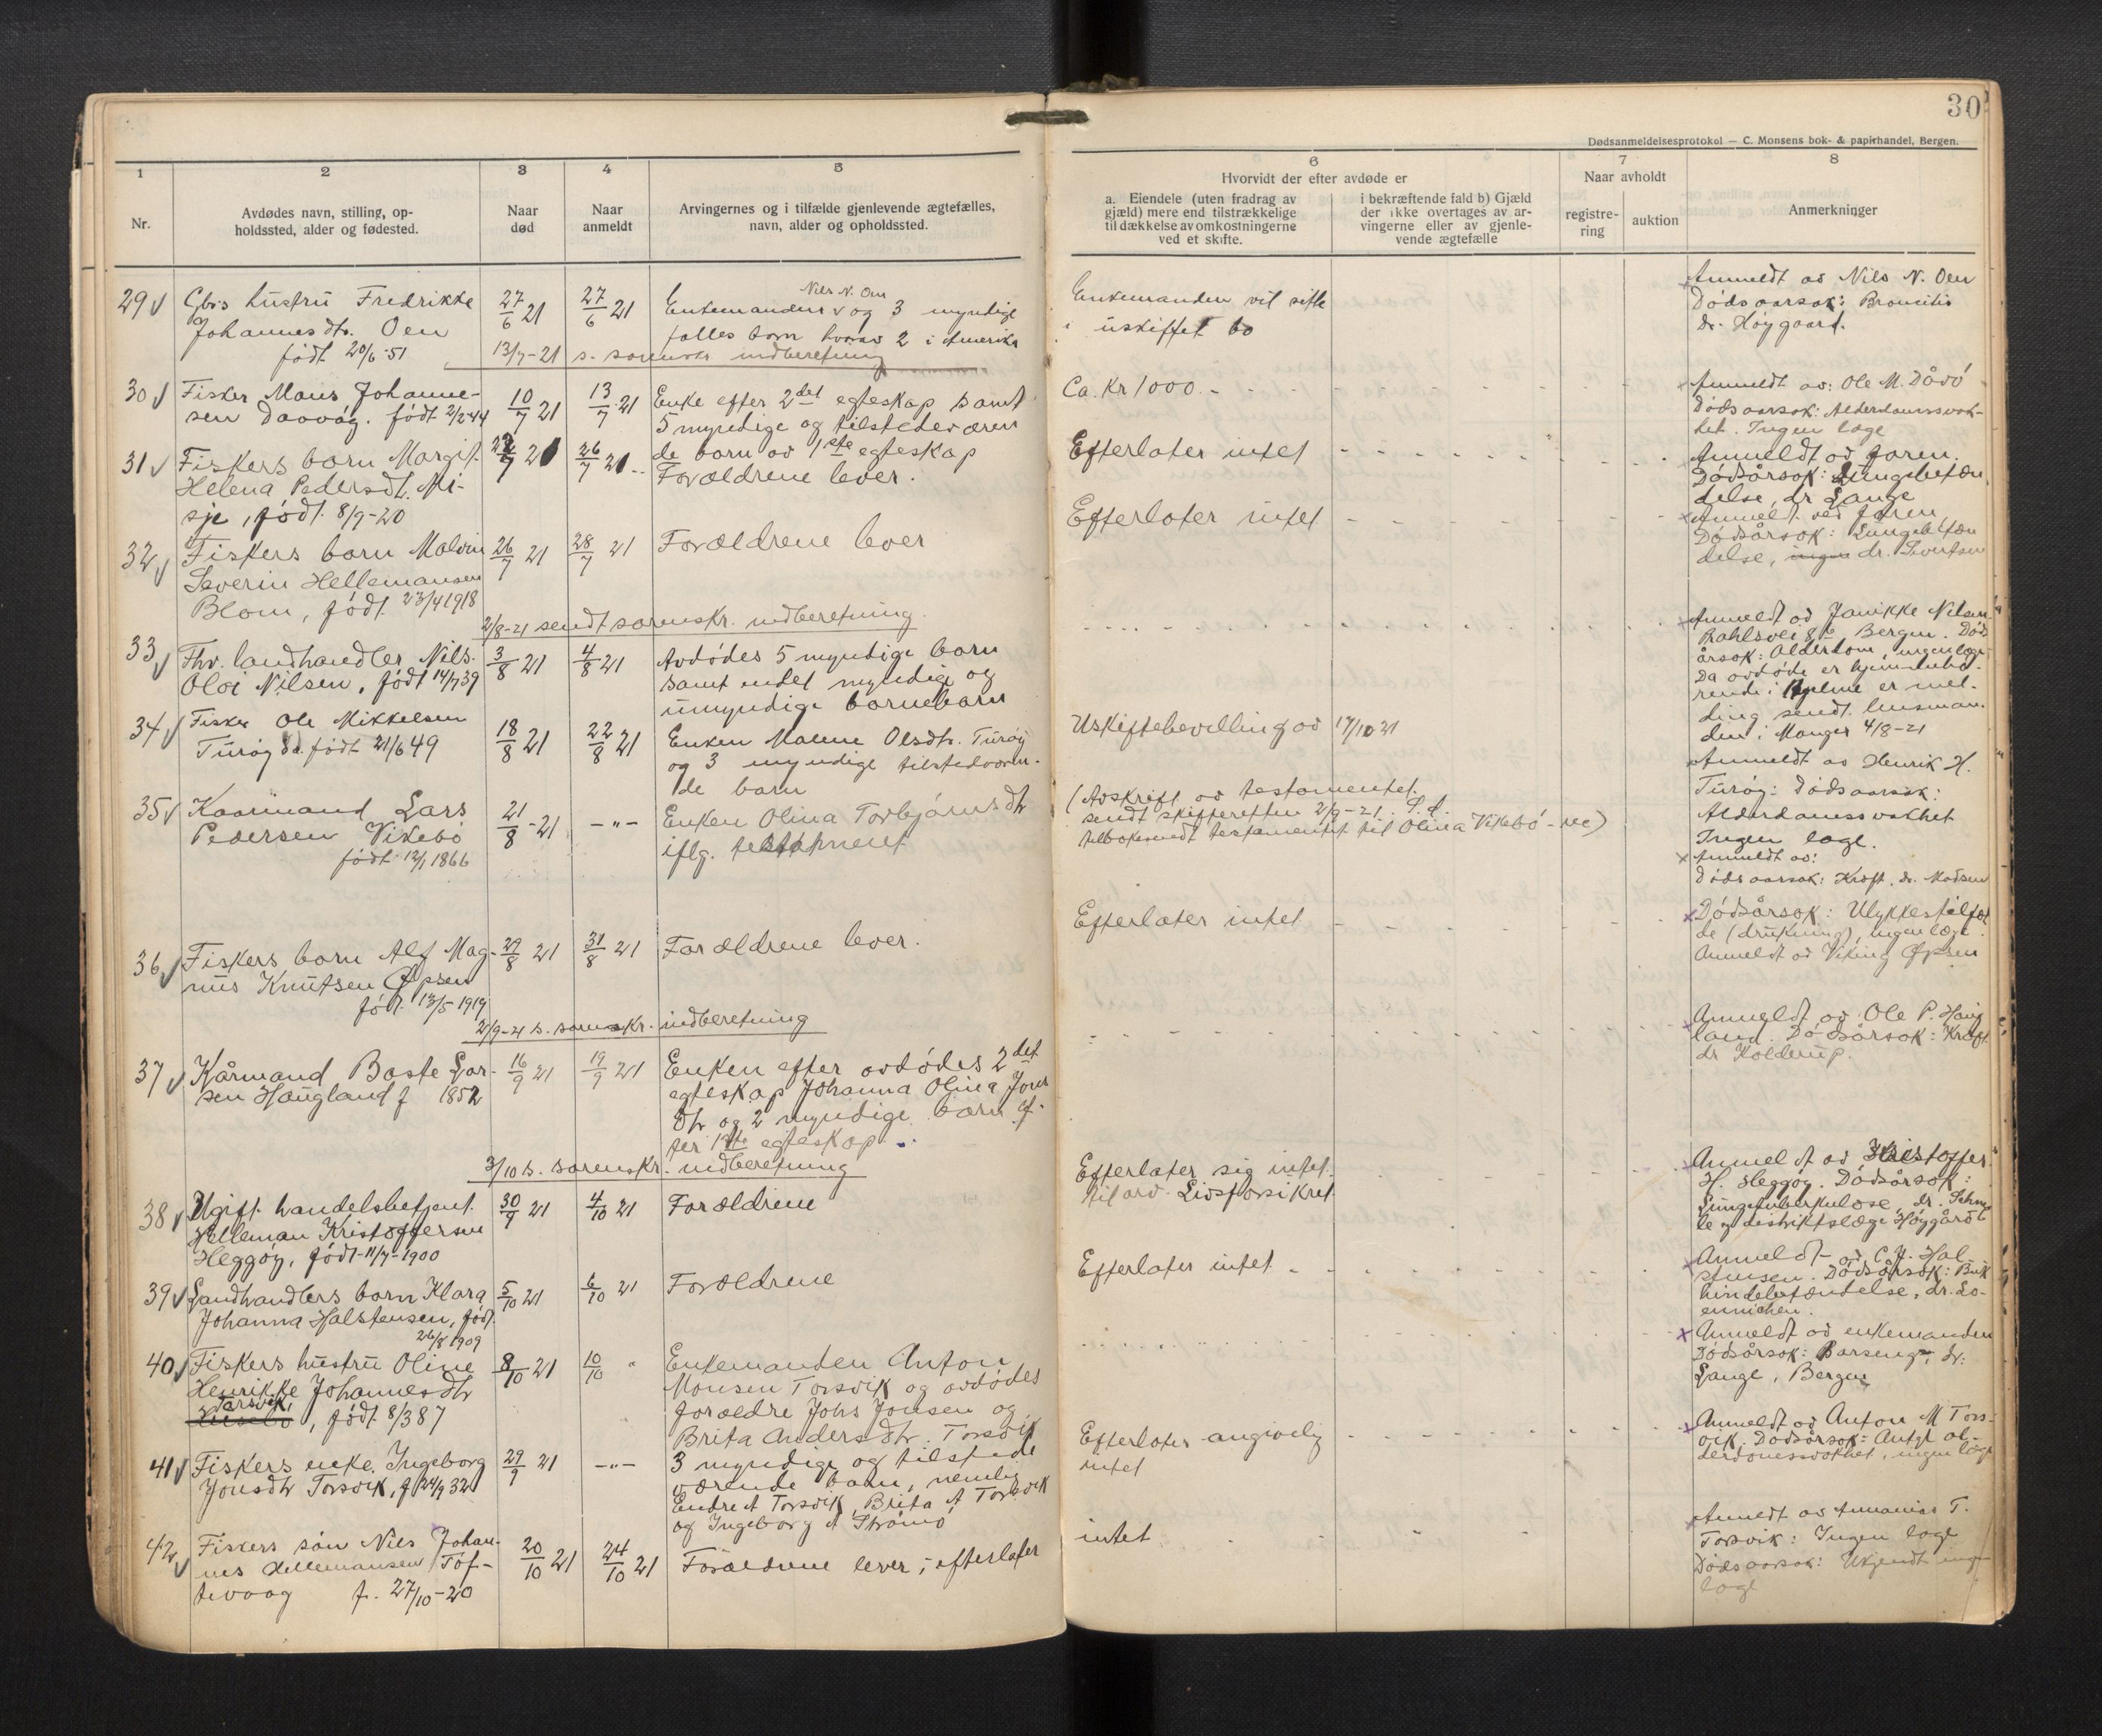 30
Dødsanmeldelsesprotokol — C. Monsens bok- & papirhandel, Bergen.
1
Nr.
2
Avdødes navn, stilling, op-
holdssted, alder og fødested.
3
Naar
død
4
Naar
anmeldt
5
Arvingernes og i tilfælde gjenlevende ægtefælles,
navn, alder og opholdssted.
6
Hvorvidt der efter avdøde er
a. Eiendele (uten fradrag av
gjæld) mere end tilstrækkelige
til dækkelse av omkostningerne
ved et skifte.
i bekræftende fald b) Gjæld
der ikke overtages av ar-
vingerne eller av gjenle-
vende ægtefælle
7
Naar avholdt
registre-
ring
auktion
8
Anmerkninger
29
Gbrs hustru Fredrikke
Johannesdtr. Oen
født 20/6-51
27/6 21
27/6 21
Nils N. Oen
Enkemanden og 3 myndige
fælles barn hvorav 2 i Amerika
Enkemanden vil sitte
i uskiftet bo
Anmeldt av Nils N. Oen
Dødsaarsak: Broncitis
dr. Høygaard.
13/7-21 s. sorenskr indberetning
30
Fisker Mons Johanne-
sen Daavøy. født 2/2-44
10/7 21
13/7 21
Enke efter 2det egteskap samt
5 myndige og tilstedeværen
de barn av 1ste egteskap
Ca. Kr 1000.-
Anmeldt av: Ole M. Dåvø
Dødsaarsak: Alderdomssvak-
het. Ingen læge
31
Fiskers barn Margit
Helena Pedersdt. Mi-
sje, født 8/9-20
7 21
26/7 21
Forældrene lever.
Efterlater intet
Anmeldt av faren.
Dødsårsak: Lungebetæn
delse, dr Lange
32
Fiskers barn Malvin
Severin Hellemansen
Blom, født 23/4 1918
26/7 21
28/7 21
Forældrene lever
Efterlater intet
Anmeldt ved faren
Dødsårsak: Lungebetæn
delse, ingen dr. Sivertsen
2/8-21 sendt sorenskr. indberetning
33
Fhv. landhandler Nils
Oloi Nilsen, født 14/7 39
3/8 21
4/8 21
Avdødes 5 myndige barn
samt endel myndige og
umyndige barnebarn
Anmeldt av Janikke Nilsen
Bergen. Død
årsak: Alderdom, ingen læge
Da avdøde er hjemmehø-
rende i Hjelme er mel-
ding sendt lensman-
den i Manger 4/8-21
34
Fisker Ole Mikkelsen
Turøy født 21/6 49
18/8 21
22/8 21
Enken Malene Olsdtr. Turøy
og 3 myndige tilstedeværen-
de barn
Uskiftebevilling av 17/10 21
Anmeldt av Henrik H.
Turøy: Dødsaarsak:
Alderdomssvakhet
Ingen læge.
35
Kaarmand Lars
Pedersen Vikebø
født 12/1 1866
21/8-21
—"—
Enken Olina Torbjørnsdtr
iflg. testament
(Avskrift av testamentet
sendt skifteretten 2/9-21. S.d.
tilbakesendt testamentet til Olina Vikebø - re)
Anmeldt av:
Dødsaarsak: Kræft. dr. Madsen
36
Fiskers barn Alf Mag-
nus Knutsen Øpsen
født 13/5 1919
29/8 21
31/8 21
Forældrene lever.
Efterlater intet
Dødsårsak: Ulykkestilfæl
de (drukning), ingen læge
Anmeldt av Viking Øpsen
2/9-21 s. sorenskr. indberetning
37
Kårmand Baste Lar-
sen Haugland f 1852
16/9 21
19/9 21
Enken efter avdødes 2det
egteskap Johanna Olina Jons
dtr og 2 myndige barn ef-
ter 1ste egteskap
Anmeldt av Ole P. Haug
land. Dødsårsak: Kræft.
dr Kolderup.
3/10 s. sorenskr. indberetning
38
Ugift handelsbetjent
Helleman Kristoffersen
Heggøy, født 11/7-1900
30/9 21
4/10 21
Forældrene
Efterlater sig intet.
Livsforsikret
Anmeldt av Kristoffer
H. Heggøy. Dødsårsak:
Lungetuberkulose, dr.
distriktslæge Høygård
39
Landhandlers barn Klara
Johanna Halstensen, født
26/8 1909
5/10 21
6/10 21
Forældrene
Efterlater intet
Anmeldt av C.J. Hal
stensen. Dødsårsak: Buk
hindebetændelse, dr. Lo-
ennichen.
40
Fiskers hustru Oline
Henrikke Johannesdtr
Torsvik
, født 8/3 87
8/10 21
10/10 "
Enkemanden Anton
Monsen Torsvik og avdødes
forældre Johs Jonsen og
Brita Andersdtr. Torsvik
Anmeldt av enkemanden
Dødsårsak: Barseng, dr.
Lange, Bergen
41
Fiskers enke Ingeborg
Jonsdtr Torsvik, f 24/9 32
29/9 21
—"—
3 myndige og tilstede
værende barn, nemlig
Endre A Torsvik, Brita A Torsvik
og Ingeborg A Strømø
Efterlater angivelig
intet
Anmeldt av Anton M Tors-
vik. Dødsårsak: Antgl al-
derdomssvakhet, ingen læge
42
Fiskers søn Nils Johan-
nes Hellemansen Tof-
tevaag f. 27/10-20
20/10 21
24/10 21
Forældrene lever; efterlater
intet
Anmeldt av Annanias T.
Torsvik: Ingen læge
Dødsaarsak: Ukjendt ingen
læge